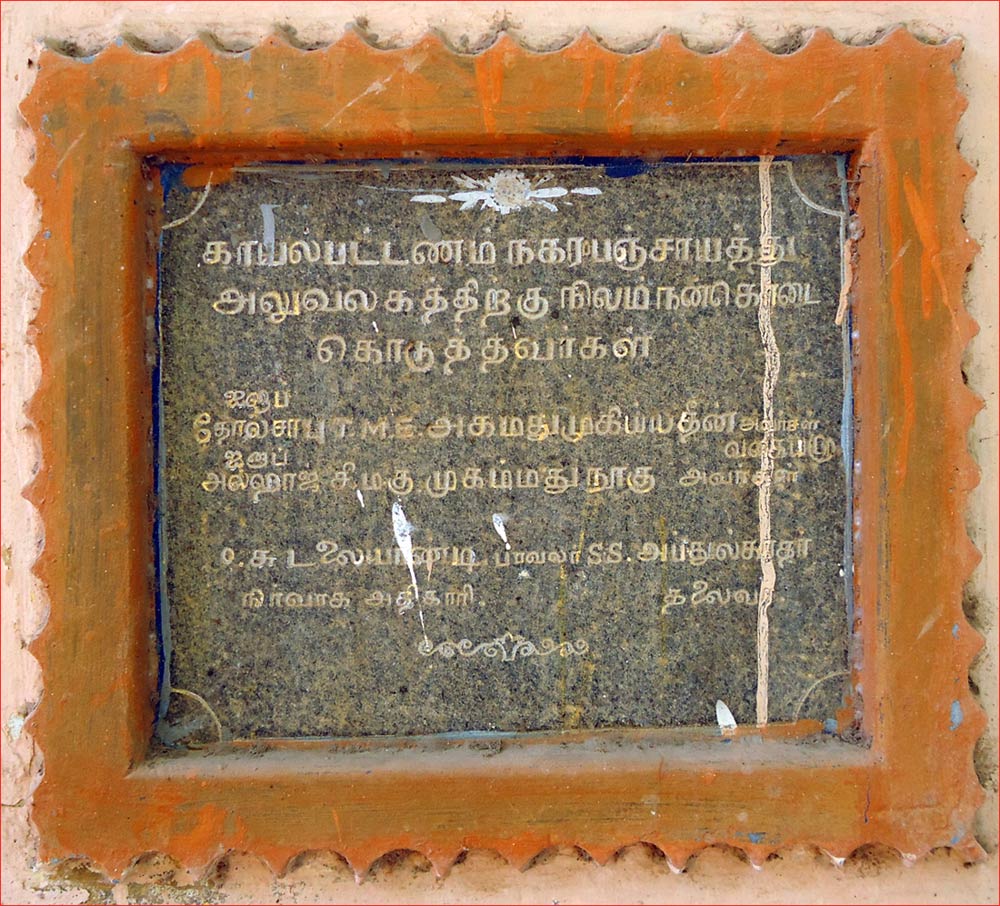 காயல்பட்டணம் நகரபஞ்சாயத்து
அலுவலகத்திற்கு நிலம் நன்கொடை
கொடுத்தவர்கள்
ஜனாப்
தோல்சாபு T.M.E. அகமது முகிய்யதீன் அவர்கள்
வகையறா
ஜனாப்
அல்ஹாஜ் சி.மகு. முகம்மது நூகு அவர்கள்
O. சுடலையாண்டி. பாவலர் S.S. அப்துல்காதர்
நிர்வாக அதிகாரி. தலைவர்.